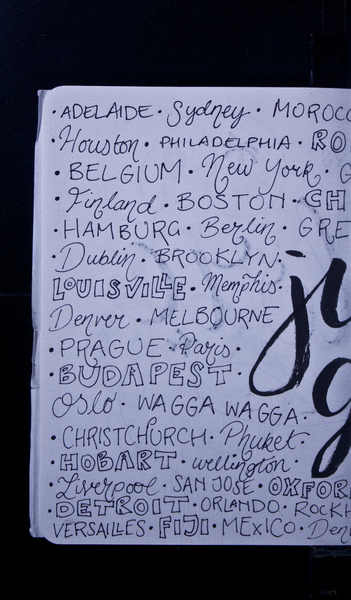 · ADELAIDE · Sydney · MOROCC
· Houston · PHILADELPHIA · RO
· BELGIUM · New York · G
· Finland · BOSTON · CH
· HAMBURG · Berlin · GRE
· Dublin · BROOKLYN ·
LOUISVILLE · Memphis ·
Denver · MELBOURNE
ju
· PRAGUE · Paris ·
· BUDAPEST ·
g
Oslo · WAGGA WAGGA ·
· CHRISTCHURCH · Phuket ·
· HOBART · wellington ·
· Liverpool · SAN JOSE · OXFOR
· DETROIT · ORLANDO · ROCKH
VERSAILLES · FIJI · MEXICO · Den